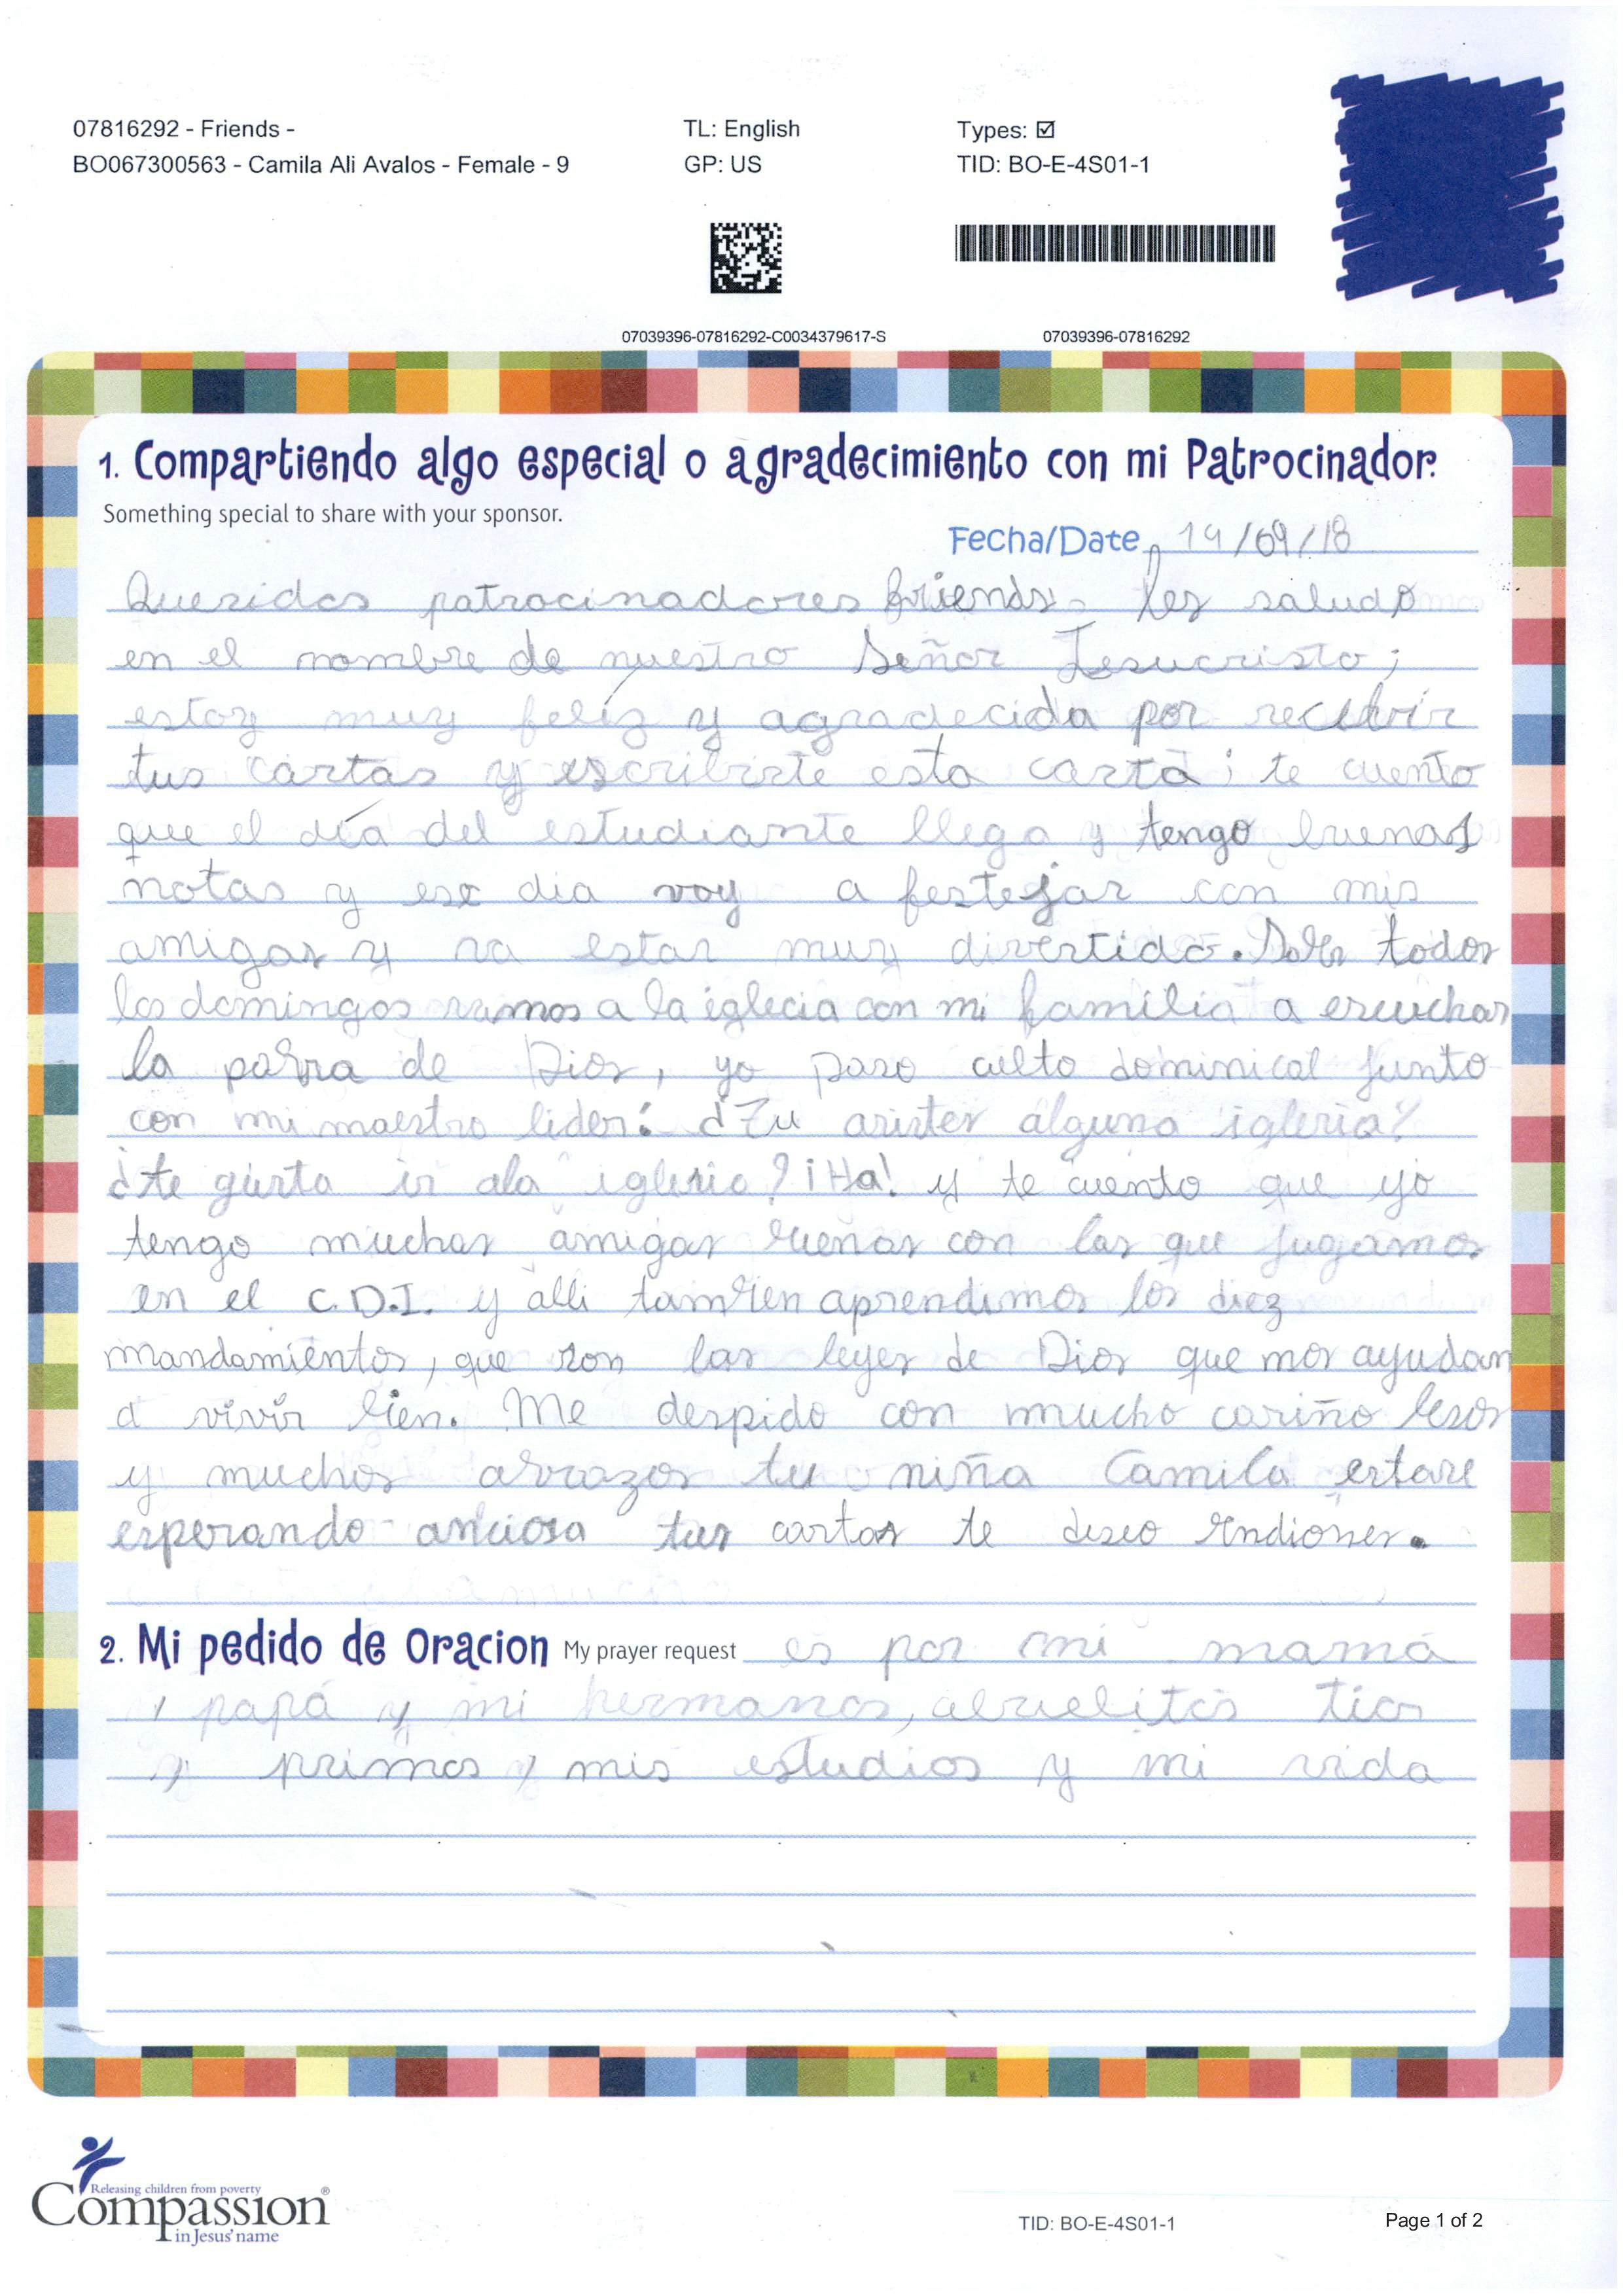 07816292 - Friends -
BO067300563 - Camila Ali Avalos - Female - 9
TL: English
GP: US
Types: ☑
TID: BO-E-4S01-1
07039396-07816292-C0034379617-S
07039396-07816292
1. Compartiendo algo especial o agradecimiento con mi Patrocinador.
Something special to share with your sponsor.
Fecha/Date 14/09/18
Queridos patrocinadores friends. les saludo
en el nombre de nuestro Señor Jesucristo;
estoy muy felíz y agradecida por recibir
tus cartas y escribirte esta carta; te cuento
que el día del estudiante llego y tengo buenas
notas y ese dia voy a festejar con mis
amigas y va estar muy divertido. todos
los domingos vamos a la iglecia con mi familia a escuchar
la de Dios, yo paso culto dominical junto
con mi maestro lider: ¿Tu asistes alguna iglesia?
¿te gusta ir ala iglesia? ¡Ha! y te cuento que yo
tengo muchas amigas buenas con las que jugamos
en el C.D.I. y alli tambien aprendimos los diez
mandamientos, que son las leyes de Dios que nos ayudan
a vivir bien. Me despido con mucho cariño besos
y muchos abrazos tu niña Camila estare
esperando anciosa tus cartas te deseo
2. Mi pedido de Oracion My prayer request es por mi mamá
y papá y mi hermanos, abuelitos tios
y primos y mis estudios y mi vida
Releasing children from poverty
Compassion®
in Jesus' name
TID: BO-E-4S01-1
Page 1 of 2